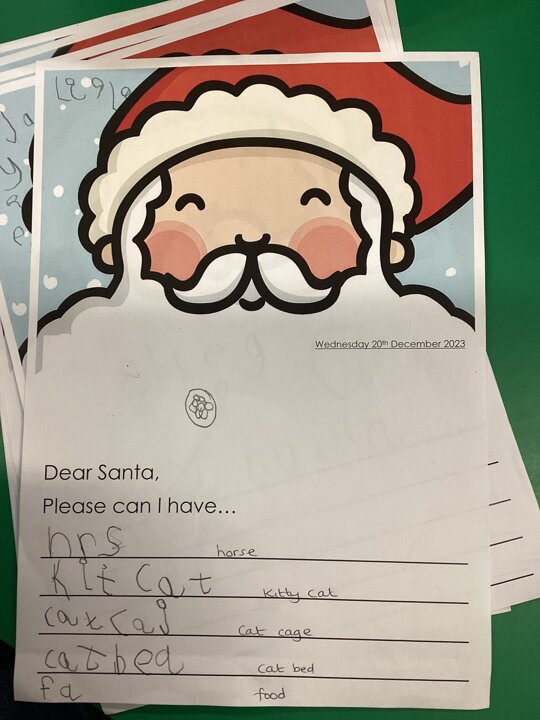 Wednesday 20th December 2023
Dear Santa,
Please can I have...
hrs horse
kit cat Kitty cat
cax caj cat cage
catbed cat bed
fa food